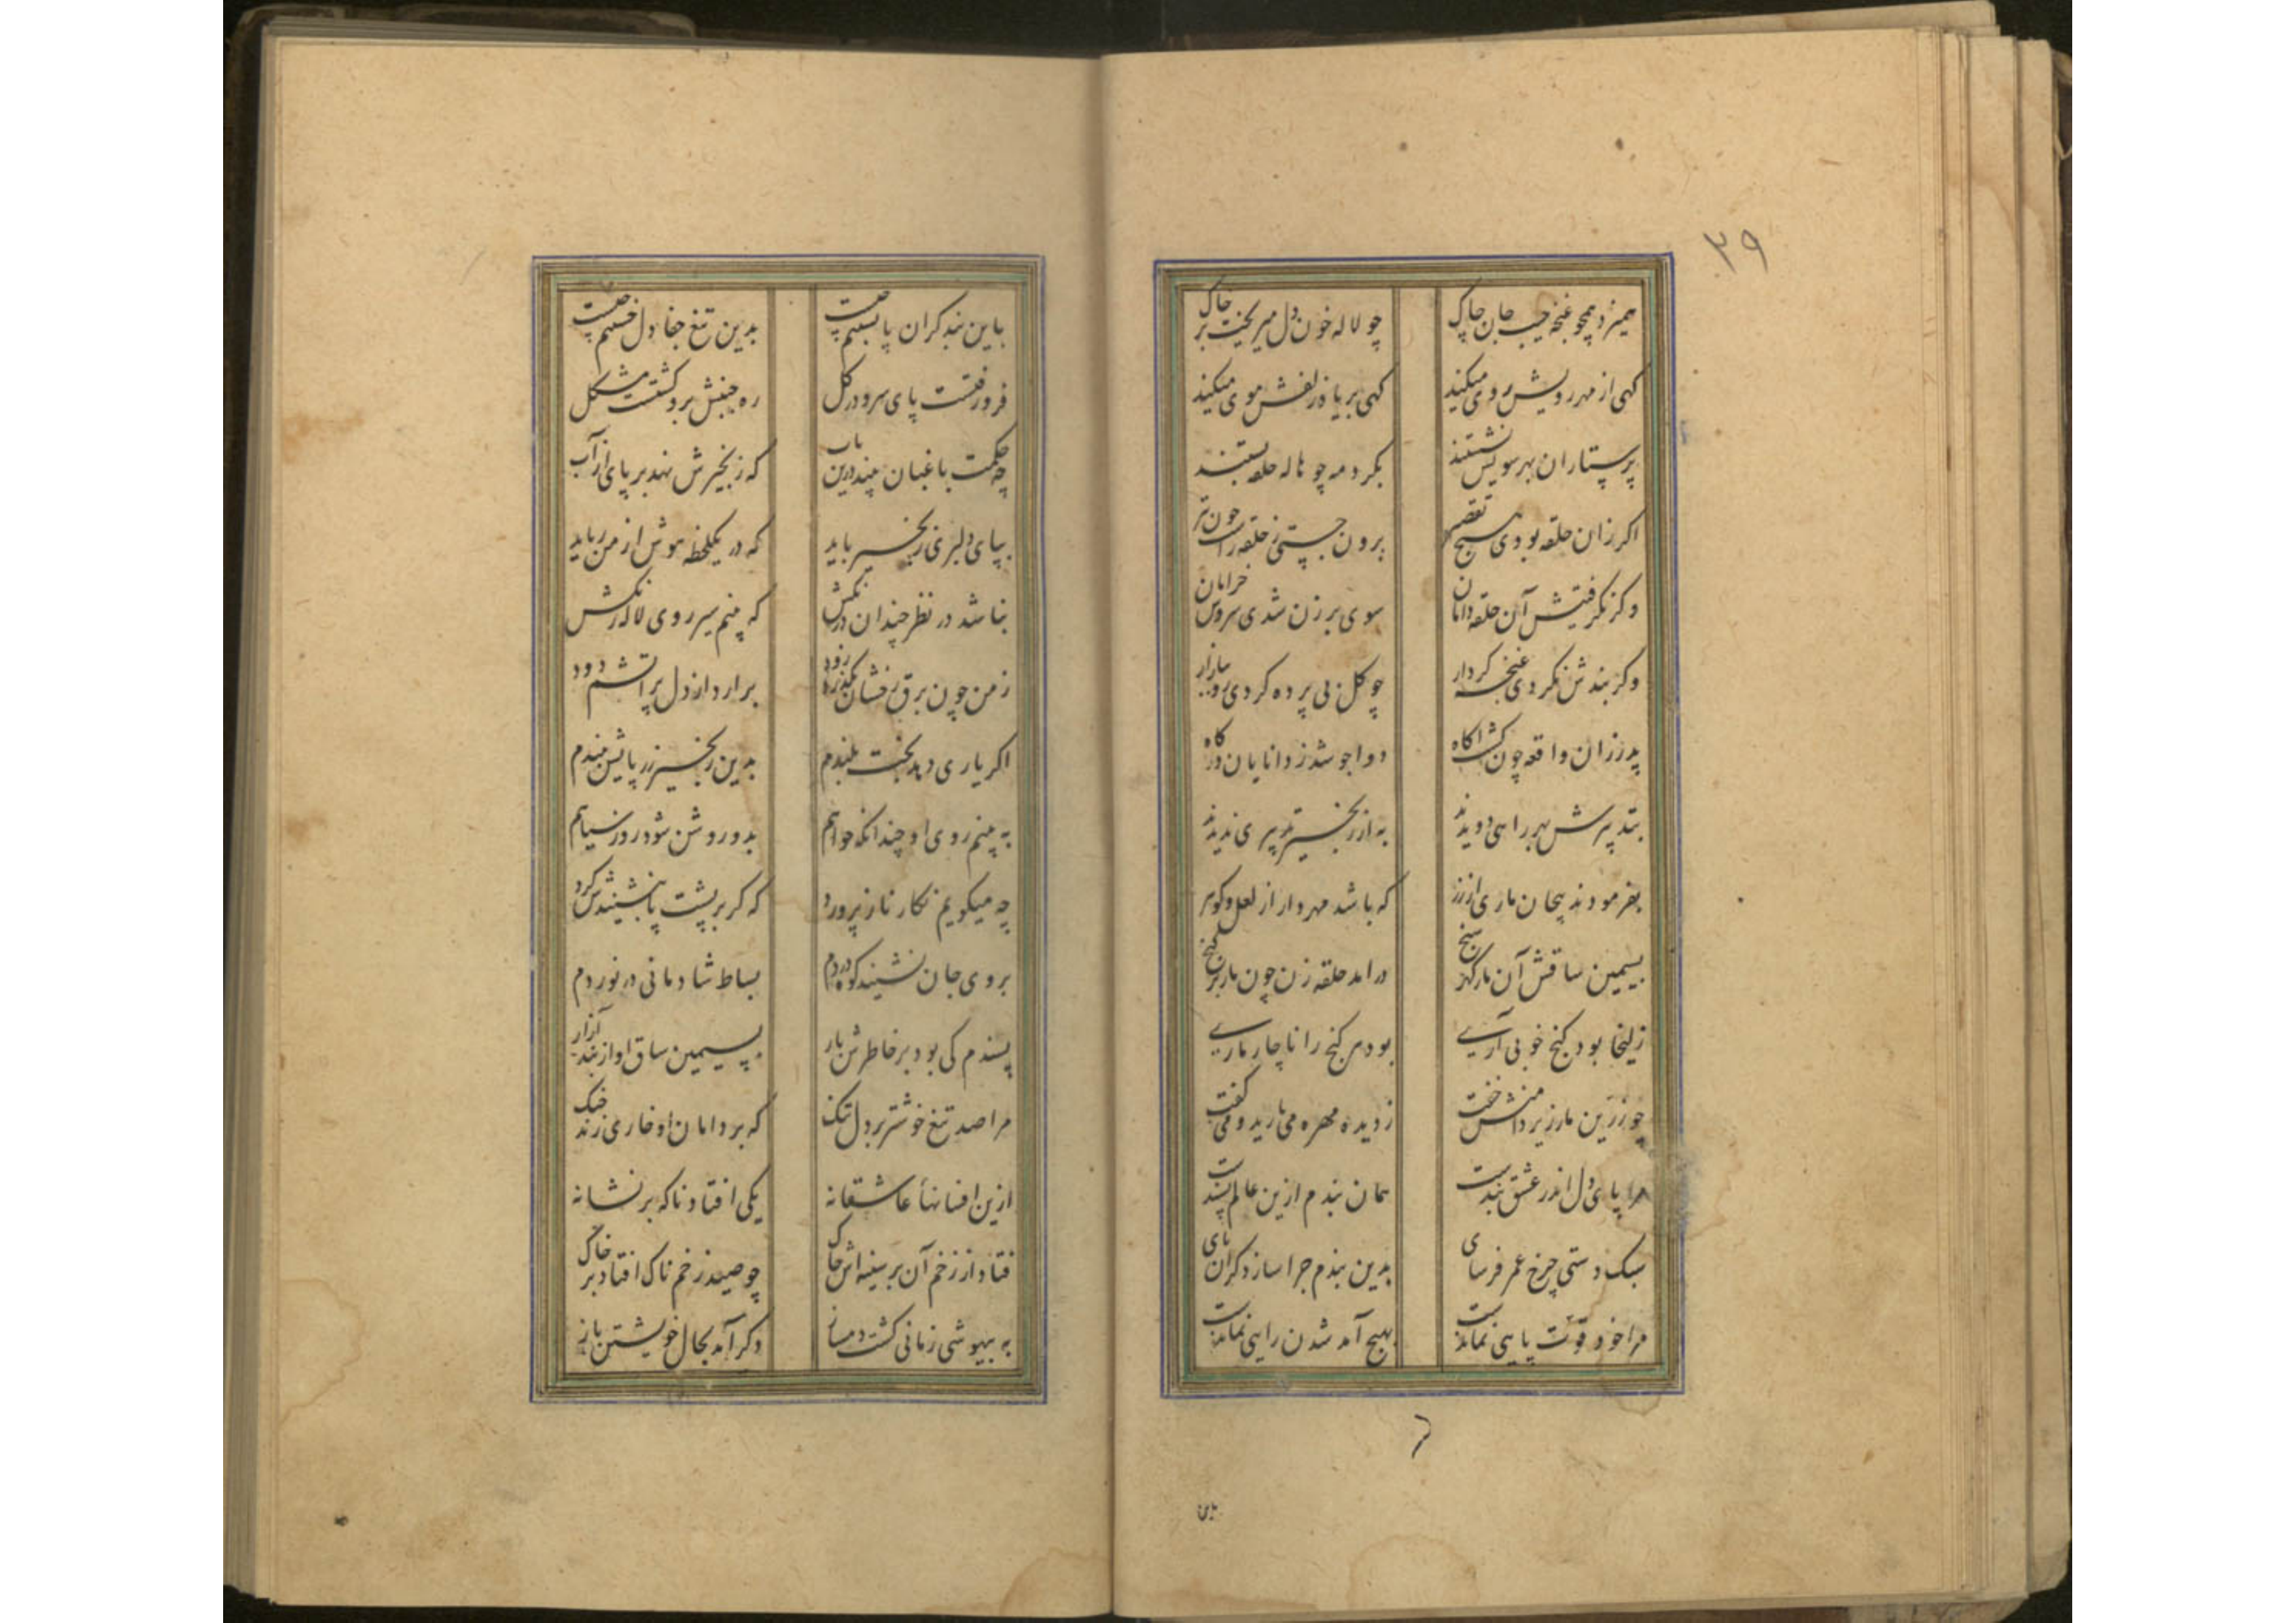 ۳۹
همیزد همچو غنچه جیب جان چاک چو لاله خون دل میریخت بر خاک
کهی از مهر رویش روی میکند کهی بر یاد زلفش موی میکند
پرستاران بهر سویش نشستند بکرد مه چو هاله حلقه بستند
اکر زان حلقه بودی هیچ تقصیر برون جستی ز حلقه راست چون تیر
وکر نکرفتیش آن حلقه دامان سوی برزن شدی سروش خرامان
وکر بندش نکردی غنچه کردار چو کل بی پرده کردی رو ببازار
پدر زان واقعه چون کشت اکاه دوا جو شد ز دانایان درکاه
بتدبیرش بهر راهی دویدند به از زنجیر تدبیری ندیدند
بفرمودند پیچان ماری از زر که باشد مهره دار از لعل و کوهر
بسیمین ساقش آن مار کهر سنج درامد حلقه زن چون مار بر کنج
زلیخا بود کنج خوبی آرے بود هر کنج را ناچار مارے
چو زرین مار زیر دامنش خفت ز دیده مهره می بارید و می کفت
مرا پای دل اندر عشق بندست همان بندم ازین عالم پسندست
سبک دستی چرخ عمر فرسای بدین بندم چرا سازد کران پای
مرا خود قوت پایی نماندست بهیچ آمد شدن رایی نماندست
باین
باین بند کران پا بستیم چیست بدین تیغ جفا دل خستیم چیست
فرو رفتست پای سرو در کل ره جنبش برو کشتست مشکل
چه حکمت باغبان بیند درین باب که زنجیرش نهد بر پای از آب
بپای دلبری زنجیر باید که در یکلحظه هوش از من رباید
نباشد در نظر چندان درنکش که بینم سیر روی لاله رنکش
ز من چون برق رخشان بکذرد زود برارد از دل پر اتشم دود
اکر یاری دهد بخت بلندم بدین زنجیر زر پایش ببندم
به بینم روی او چندانکه خواهم بدو روشن شود روز سیاهم
چه میکویم نکار ناز پرورد که کر بر پشت پا بنشیندش کرد
بروی جان نشیند کوه دردم بساط شادمانی در نوردم
پسندم کی بود بر خاطرش بار بسیمین ساق او از بند آزار
مرا صد تیغ خوشتر بر دل تنک که بر دامان او خاری زند چنک
ازین افسانها عاشقانه یکی افتاد ناکه بر نشانه
فتاد از زخم آن بر سینه اش چاک چو صید زخم ناک افتاد بر خاک
به بیهوشی زمانی کشت دمساز دکر آمد بحال خویشتن باز